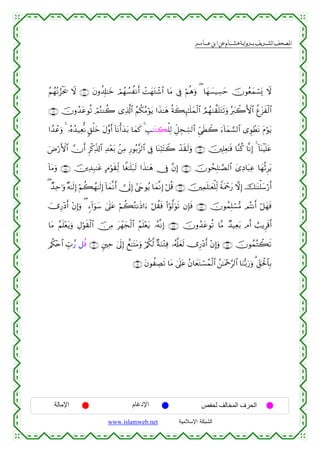 المصحف الشريف برواية هشام عن ابن عامر
لَا يَسْمَعُونَ حَسِيسَهَا ۖ وَهُمْ فِي مَا اشْتَهَتْ أَنفُسُهُمْ خَالِدُونَ ۝ لَا يَحْزُنُهُمُ
الْفَزَعُ الْأَكْبَرُ وَتَتَلَقَّاهُمُ الْمَلَائِكَةُ هَٰذَا يَوْمُكُمُ الَّذِي كُنتُمْ تُوعَدُونَ ۝
يَوْمَ نَطْوِي السَّمَاءَ كَطَيِّ السِّجِلِّ لِلْكِتَابِ ۚ كَمَا بَدَأْنَا أَوَّلَ خَلْقٍ نُّعِيدُهُ ۚ وَعْدًا
عَلَيْنَا ۚ إِنَّا كُنَّا فَاعِلِينَ ۝ وَلَقَدْ كَتَبْنَا فِي الزَّبُورِ مِن بَعْدِ الذِّكْرِ أَنَّ الْأَرْضَ
يَرِثُهَا عِبَادِيَ الصَّالِحُونَ ۝ إِنَّ فِي هَٰذَا لَبَلَاغًا لِّقَوْمٍ عَابِدِينَ ۝ وَمَا
أَرْسَلْنَاكَ إِلَّا رَحْمَةً لِّلْعَالَمِينَ ۝ قُلْ إِنَّمَا يُوحَىٰ إِلَيَّ أَنَّمَا إِلَٰهُكُمْ إِلَٰهٌ وَاحِدٌ ۖ
فَهَلْ أَنتُم مُّسْلِمُونَ ۝ فَإِن تَوَلَّوْا فَقُلْ آذَنتُكُمْ عَلَىٰ سَوَاءٍ ۖ وَإِنْ أَدْرِي
أَقَرِيبٌ أَم بَعِيدٌ مَّا تُوعَدُونَ ۝ إِنَّهُ يَعْلَمُ الْجَهْرَ مِنَ الْقَوْلِ وَيَعْلَمُ مَا
تَكْتُمُونَ ۝ وَإِنْ أَدْرِي لَعَلَّهُ فِتْنَةٌ لَّكُمْ وَمَتَاعٌ إِلَىٰ حِينٍ ۝ قُل رَّبِّ احْكُم
بِالْحَقِّ ۗ وَرَبُّنَا الرَّحْمَٰنُ الْمُسْتَعَانُ عَلَىٰ مَا تَصِفُونَ ۝
الحرف المخالف لحفص الإدغام الإمالة
الشبكة الإسلامية www.islamweb.net